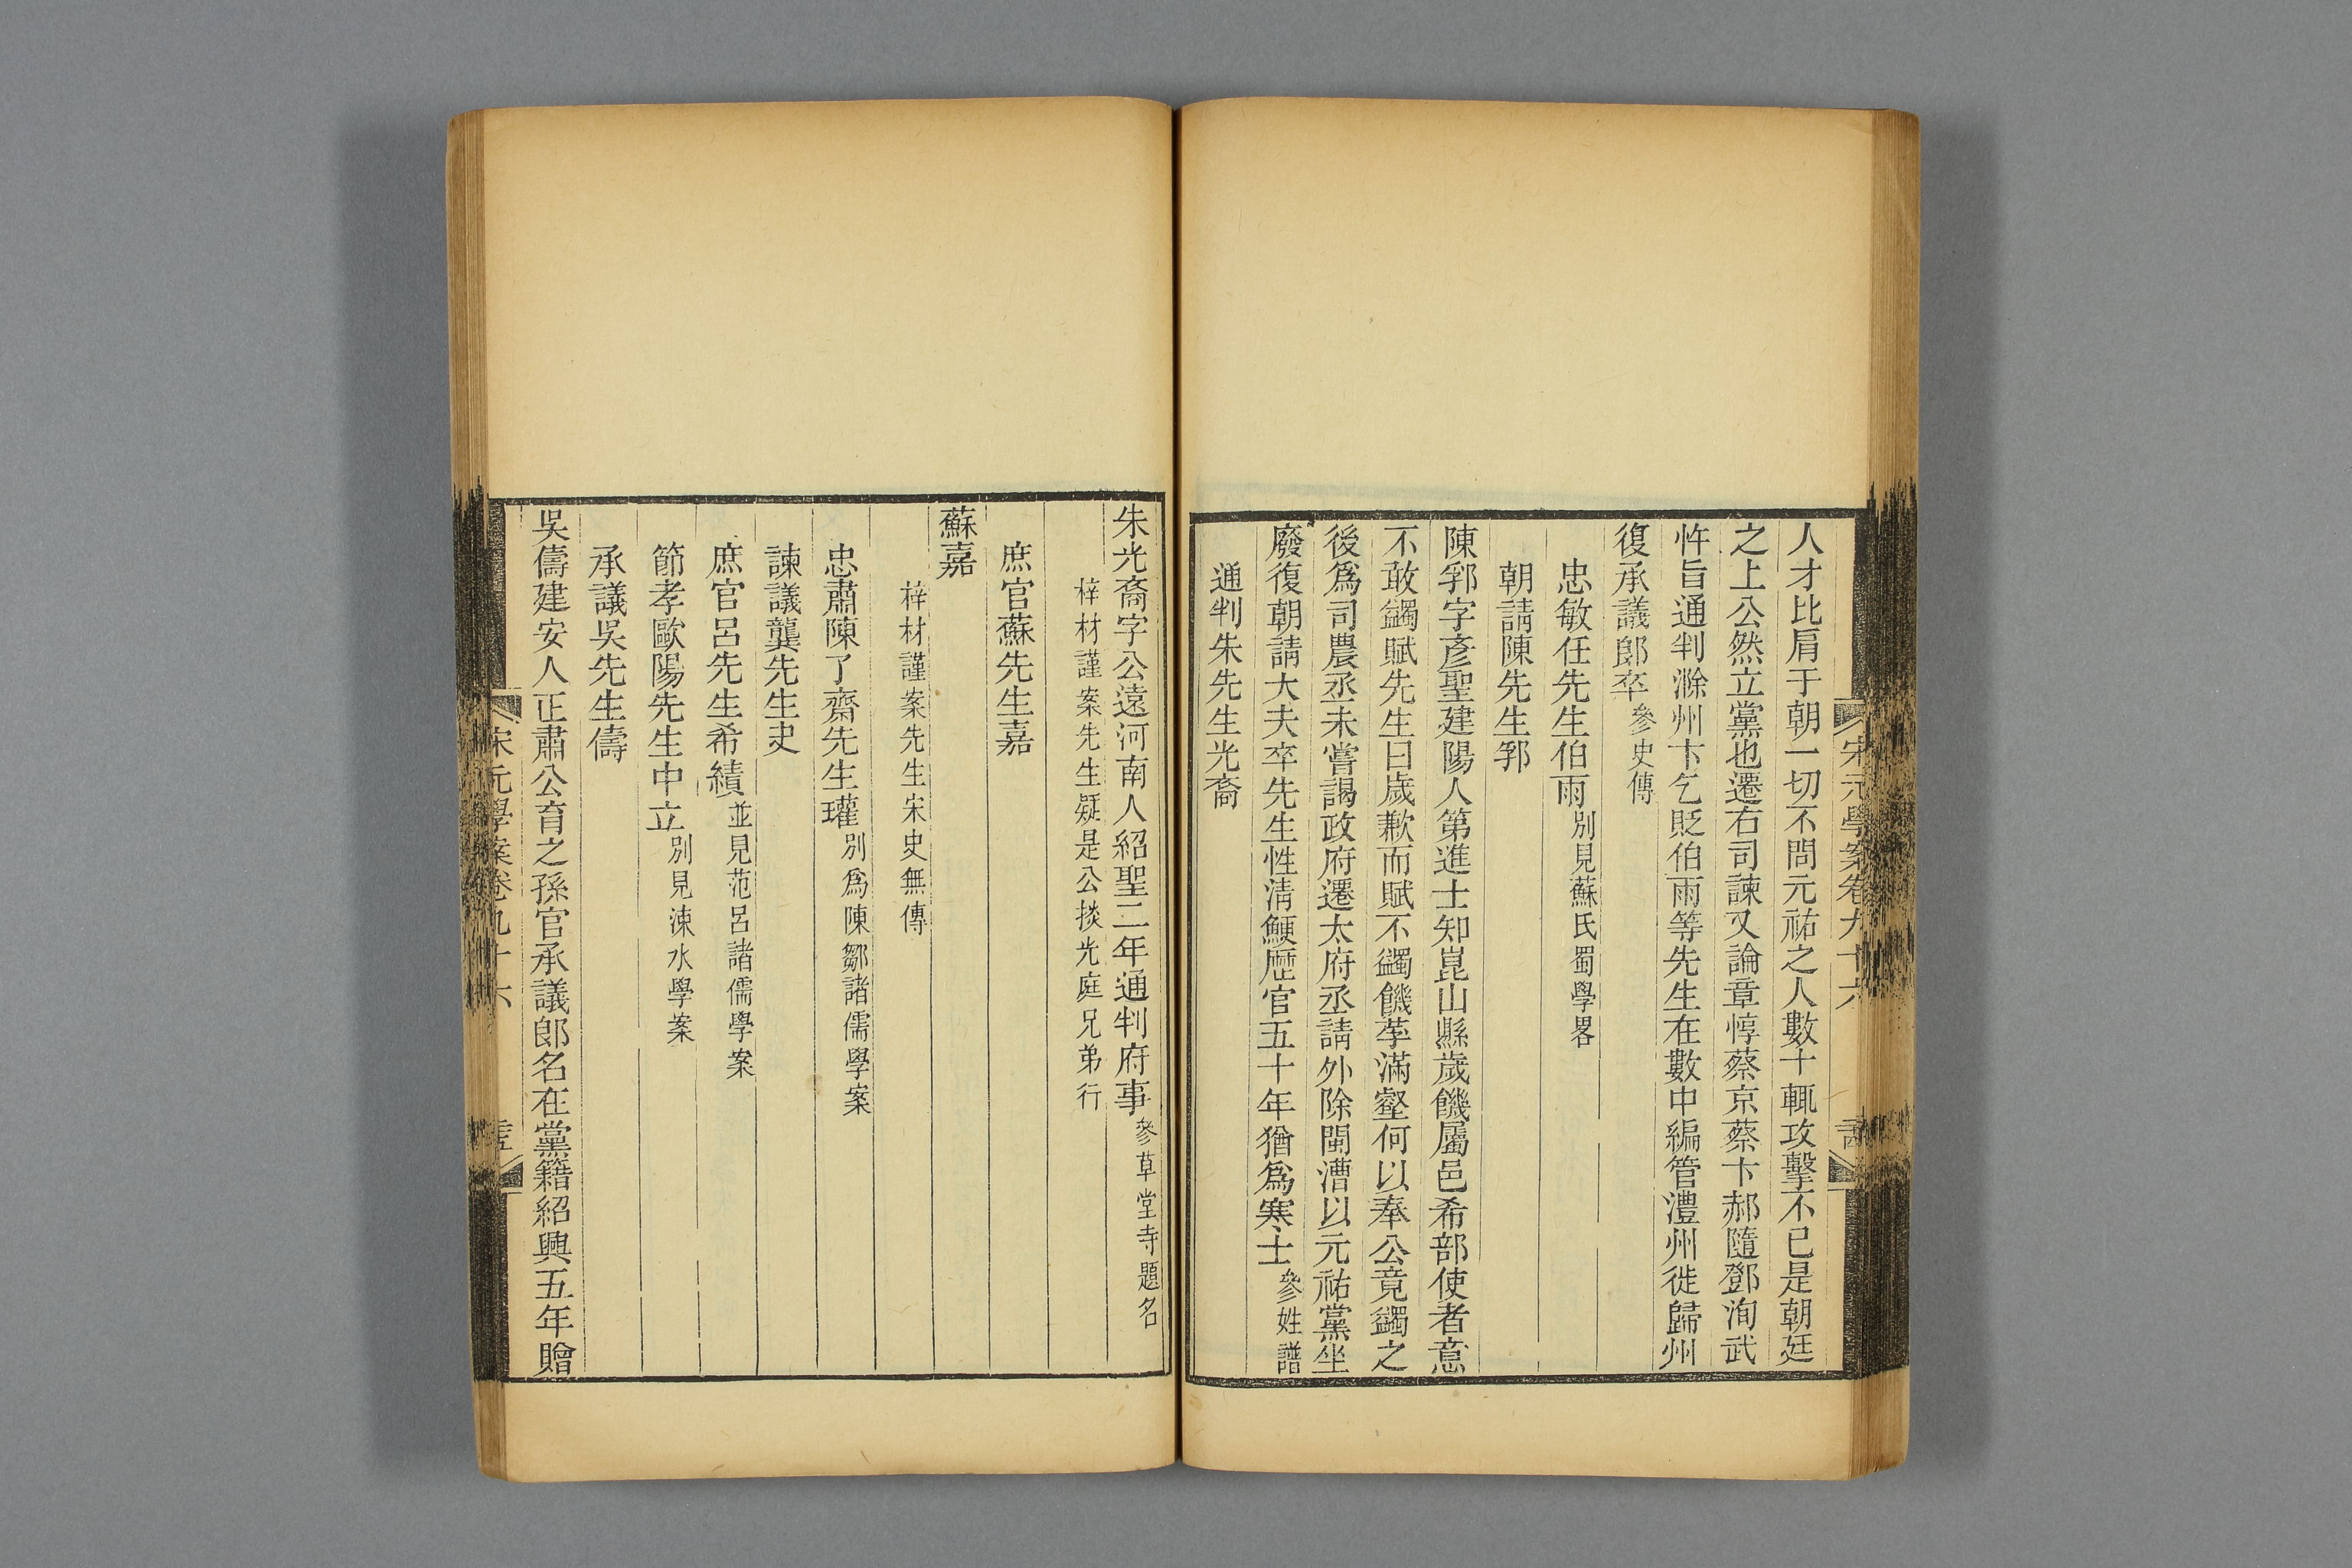 宋元學案卷九十六
人才比肩于朝一切不問元祐之人數十輒攻擊不已是朝廷
之上公然立黨也遷右司諫又論章惇蔡京蔡卞郝隨鄧洵武
忤旨通判滁州卞乞貶伯雨等先生在數中編管澧州徙歸州
復承議郎卒參史傳
忠敏任先生伯雨別見蘇氏蜀學畧
朝請陳先生郛
陳郛字彥聖建陽人第進士知崑山縣歲饑屬邑希部使者意
不敢蠲賦先生曰歲歉而賦不蠲饑莩滿壑何以奉公竟蠲之
後爲司農丞未嘗謁政府遷太府丞請外除閩漕以元祐黨坐
廢復朝請大夫卒先生性淸鯁歷官五十年猶爲寒士參姓譜
通判朱先生光裔
朱光裔字公遠河南人紹聖二年通判府事參草堂寺題名
梓材謹案先生疑是公掞光庭兄弟行
庶官蘇先生嘉
蘇嘉
梓材謹案先生宋史無傳
忠肅陳了齋先生瓘別爲陳鄒諸儒學案
諫議龔先生夬
庶官呂先生希績並見范呂諸儒學案
節孝歐陽先生中立別見涑水學案
承議吳先生儔
吳儔建安人正肅公育之孫官承議郎名在黨籍紹興五年贈
宋元學案卷九十六